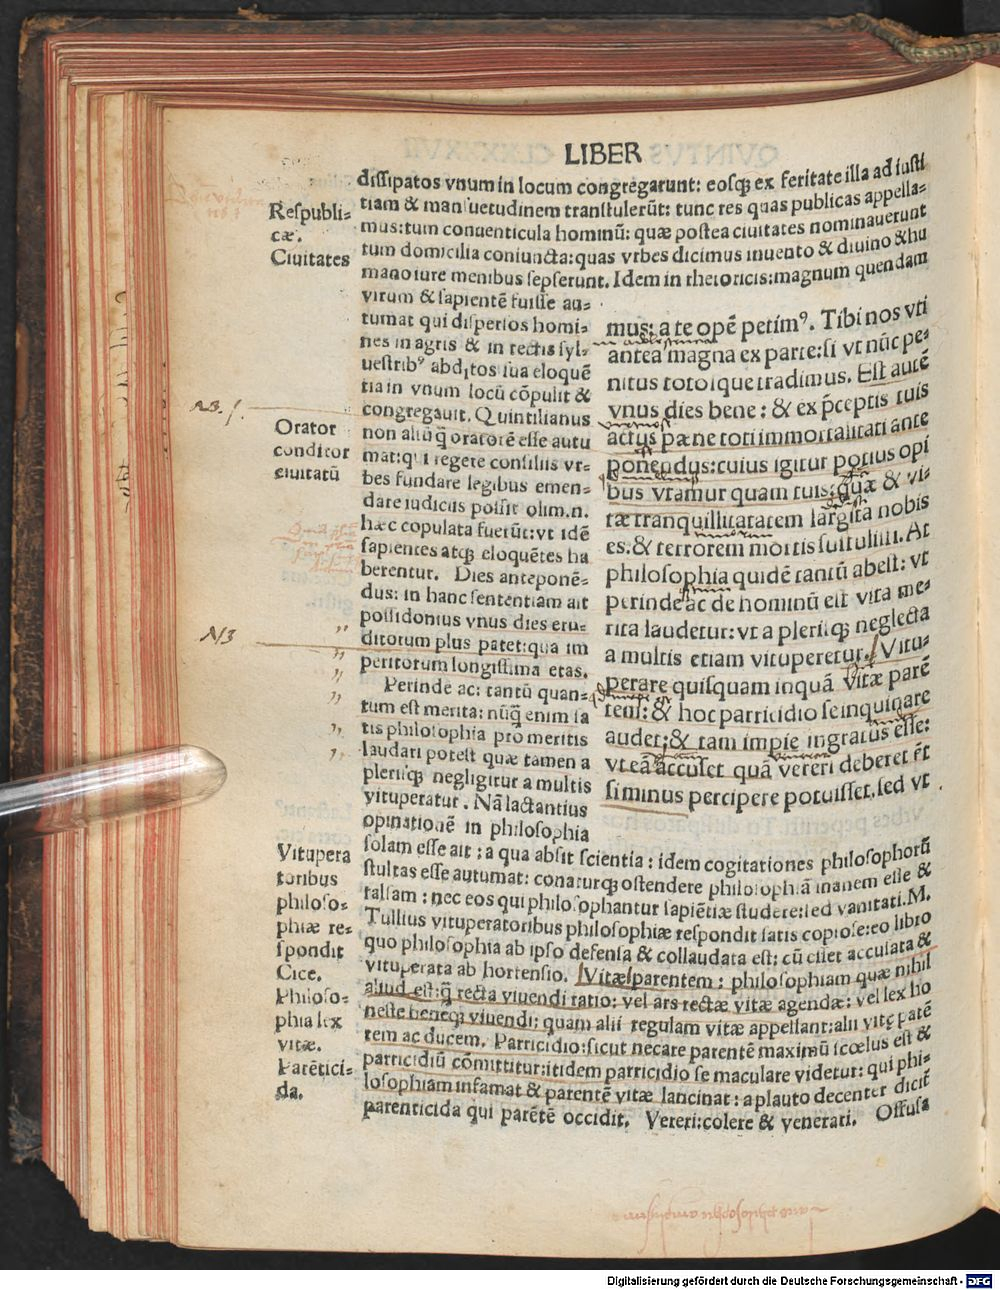 LIBER
dissipatos vnum in locum congregarunt: eosq; ex feritate illa ad iusti
tiam & mansuetudinem transtulerūt: tunc res quas publicas appella-
mus: tum conuenticula hominū: quæ postea ciuitates nominauerunt
tum domicilia coniuncta: quas vrbes dicimus inuento & diuino & hu
mano iure menibus sepserunt. Idem in rhetoricis: magnum quendam
virum & sapientē fuisse au-
tumat qui dispersos homi-
nes in agris & in tectis syl-
uestribꝰ abditos sua eloquē
tia in vnum locū cōpulit &
congregauit. Quintilianus
non aliū q̄ oratorē esse autu
mat: qui regere consiliis vr-
bes fundare legibus emen-
dare iudiciis possit olim .n.
hæc copulata fuerūt: vt idē
sapientes atq; eloquētes ha
berentur. Dies anteponē-
dus: in hanc sententiam ait
possidonius vnus dies eru-
ditorum plus patet: qua im
peritorum longissima etas.
Perinde ac: tantū quan-
tum est merita: nūq̄ enim sa
tis philosophia pro meritis
laudari potest quæ tamen a
plerisq; negligitur a multis
vituperatur. Nā lactantius
opinationē in philosophia
mus: a te opē petimꝰ. Tibi nos vti
antea magna ex parte: si vt nūc pe-
nitus totosque tradimus. Est autē
vnus dies bene: & ex p̄ceptis tuis
actus pæne toti immortalitati ante
ponendus: cuius igitur potius opi
bus vtamur quam tuis: quæ & vi-
tæ tranquillitatem largita nobis
es: & terrorem mortis sustulisti. At
philosophia quidē tantū abest: vt
perinde ac de hominū est vita me-
rita laudetur: vt a plerisq; neglecta
a multis etiam vituperetur. Vitu-
perare quisquam inquā vitæ parē
tem: & hoc parricidio se inquinare
audet: & tam impie ingratus esse:
vt eā accuset quā vereri deberet ēt
si minus percipere potuisset. sed vt
solam esse ait: a qua absit scientia: idem cogitationes philosophorū
stultas esse autumat: conaturq; ostendere philosophiā inanem esse &
falsam: nec eos qui philosophantur sapiētiæ studere: sed vanitati. M.
Tullius vituperatoribus philosophiæ respondit satis copiose: eo libro
quo philosophia ab ipso defensa & collaudata est: cū esset accusata &
vituperata ab hortensio. Vitæ parentem: philosophiam quæ nihil
aliud est: q̄ recta viuendi ratio: vel ars rectæ vitæ agendæ: vel lex ho
neste beneq; viuendi: quam alii regulam vitæ appellant: alii vitę patē
rem ac ducem. Parricidio: sicut necare parentē maximū scœlus est &
parricidiū cōmittitur: itidem parricidio se maculare videtur: qui phi-
losophiam infamat & parentē vitæ lancinat: a plauto decenter dicit̄
parenticida qui parētē occidit. Vereri: colere & venerari. Offusa
Respubli-
cæ.
Ciuitates
Orator
conditor
ciuitatū
Vitupera
toribus
philoso-
phiæ re-
spondit
Cice.
Philoso-
phia lex
vitæ.
Parētici-
da.
Digitalisierung gefördert durch die Deutsche Forschungsgemeinschaft - DFG